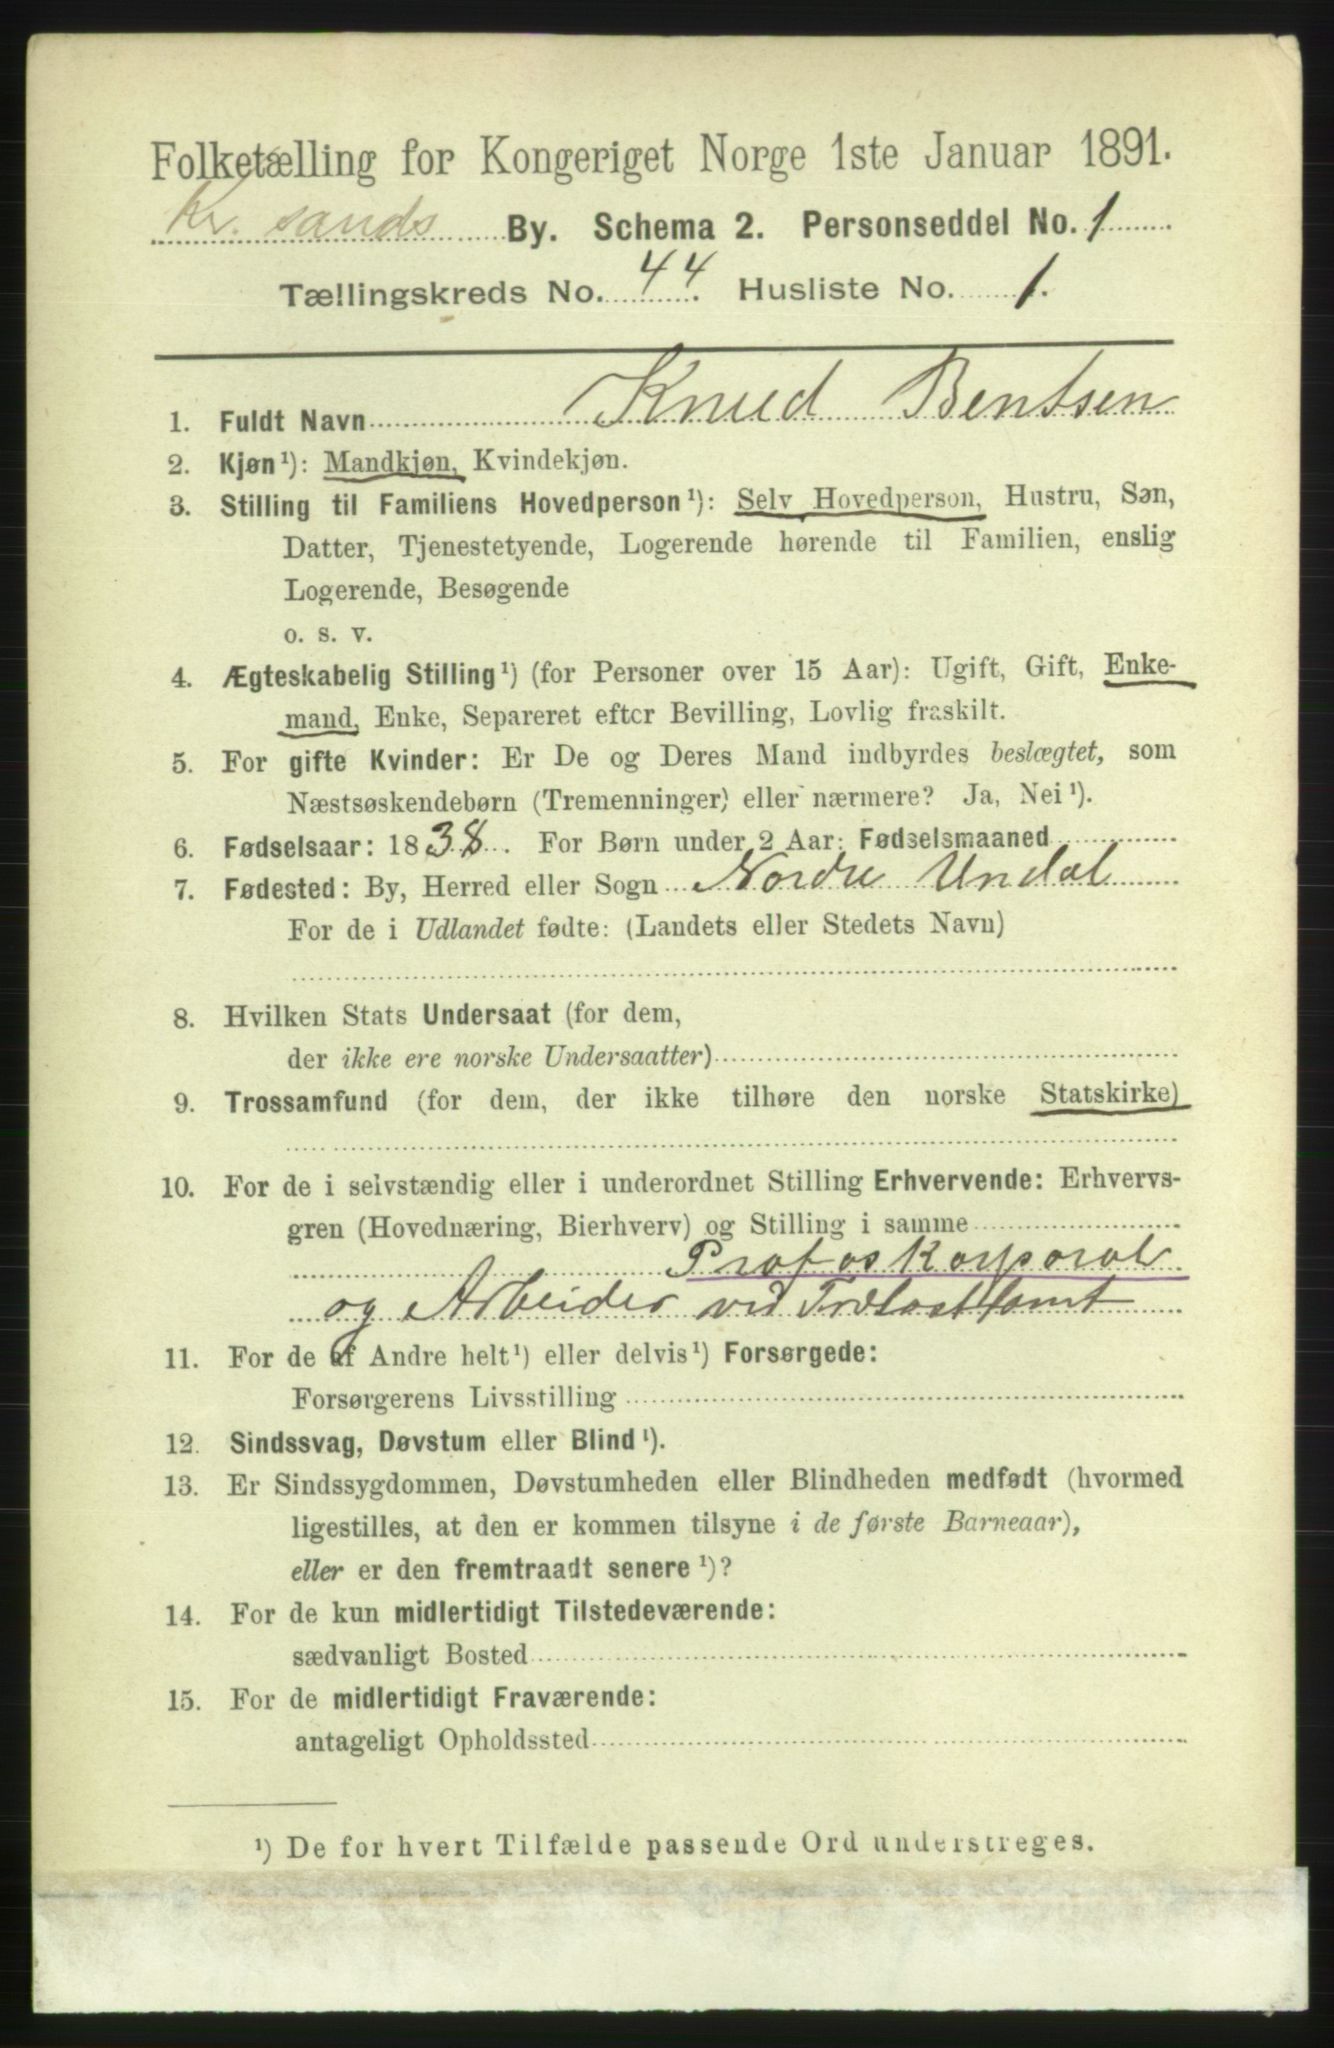 Folketælling for Kongeriget Norge 1ste Januar 1891.
Kr. sands By. Schema 2. Personseddel No. 1
Tællingskreds No. 44. Husliste No. 1.
1. Fuldt Navn Knud Bentsen
2. Kjøn¹): Mandkjøn, Kvindekjøn.
3. Stilling til Familiens Hovedperson¹): Selv Hovedperson, Hustru, Søn,
Datter, Tjenestetyende, Logerende hørende til Familien, enslig
Logerende, Besøgende
o. s. v.
4. Ægteskabelig Stilling¹) (for Personer over 15 Aar): Ugift, Gift, Enke-
mand, Enke, Separeret efter Bevilling, Lovlig fraskilt.
5. For gifte Kvinder: Er De og Deres Mand indbyrdes beslægtet, som
Næstsøskendebørn (Tremenninger) eller nærmere? Ja, Nei¹).
6. Fødselsaar: 1838. For Børn under 2 Aar: Fødselsmaaned
7. Fødested: By, Herred eller Sogn Nordre Undal
For de i Udlandet fødte: (Landets eller Stedets Navn)
8. Hvilken Stats Undersaat (for dem,
der ikke ere norske Undersaatter)
9. Trossamfund (for dem, der ikke tilhøre den norske Statskirke)
10. For de i selvstændig eller i underordnet Stilling Erhvervende: Erhvervs-
gren (Hovednæring, Bierhverv) og Stilling i samme
Profoskorporal
og Arbeider ved Trælasttomt
11. For de af Andre helt¹) eller delvis¹) Forsørgede:
Forsørgerens Livsstilling
12. Sindssvag, Døvstum eller Blind¹).
13. Er Sindssygdommen, Døvstumheden eller Blindheden medfødt (hvormed
ligestilles, at den er kommen tilsyne i de første Barneaar),
eller er den fremtraadt senere¹)?
14. For de kun midlertidigt Tilstedeværende:
sædvanligt Bosted
15. For de midlertidigt Fraværende:
antageligt Opholdssted
¹) De for hvert Tilfælde passende Ord understreges.